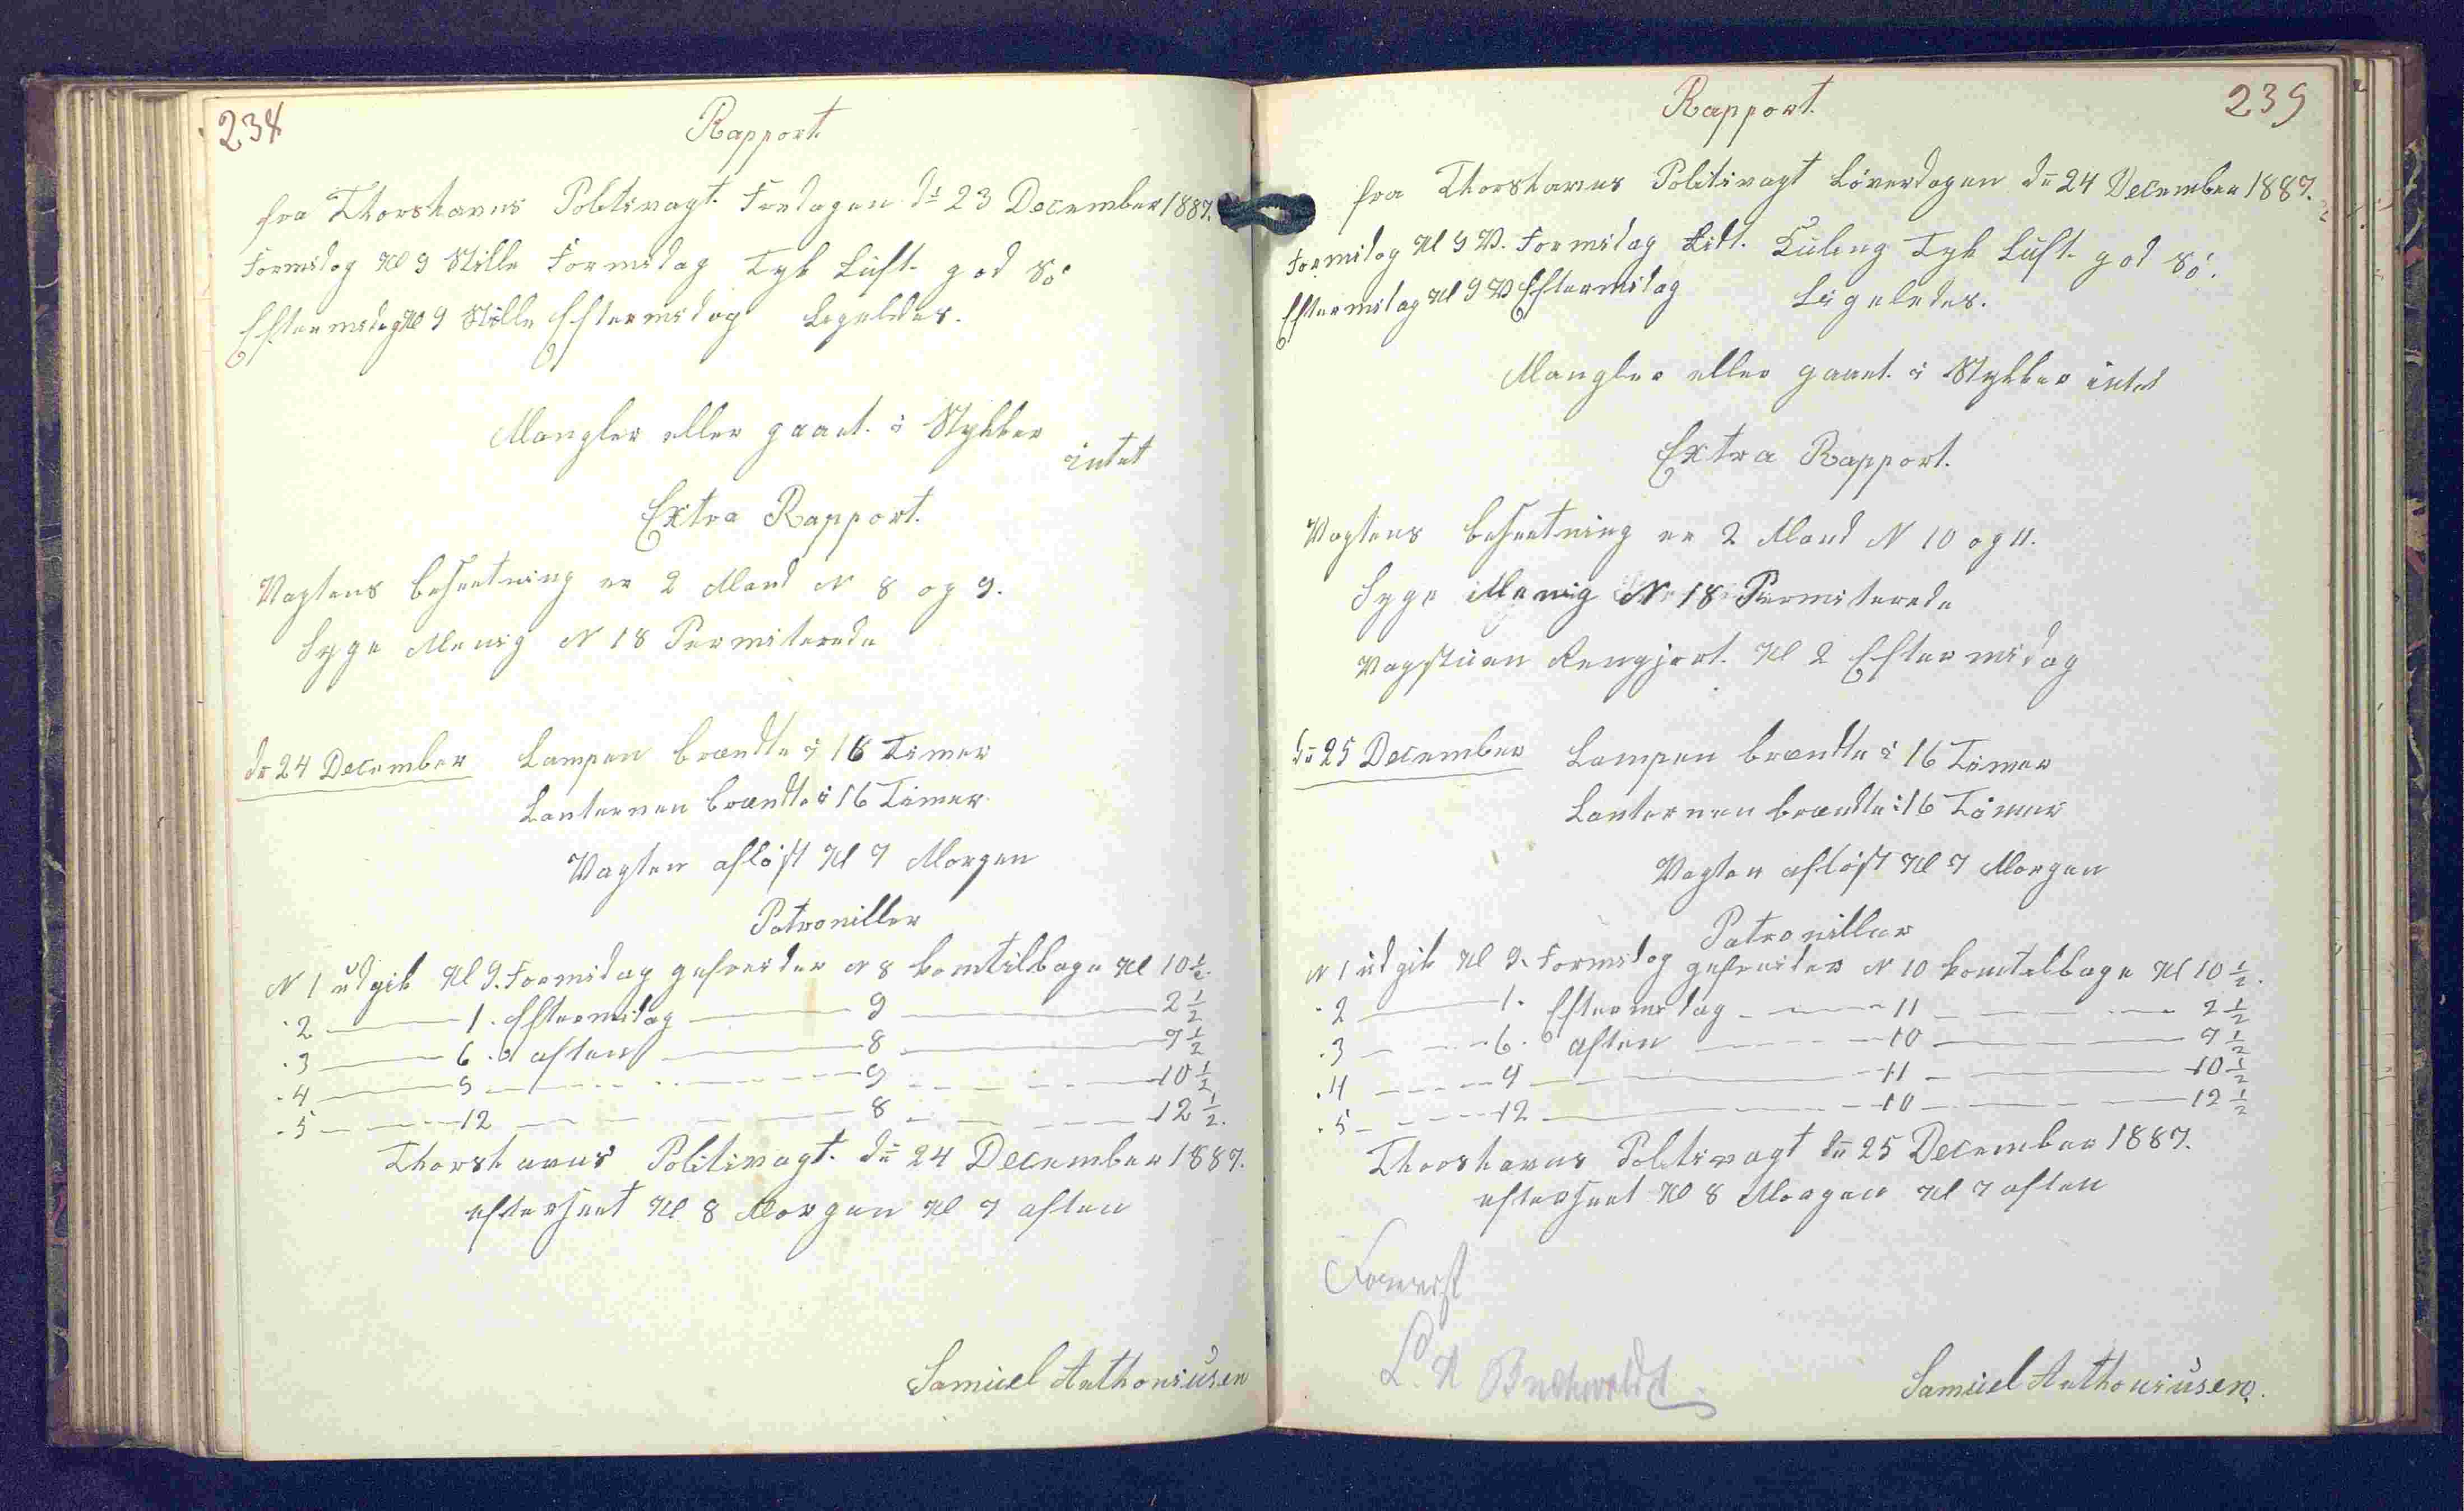 238
Rapport.
fra Thorshavns Politivagt. Fredagen d= 23 December 1887.
Formidag Kl 9 Stille Formidag Tyk Luft. god Sö.
Eftermidag Kl 9 Stille Eftermidag Ligeledes.
Mangler eller gaaet. i Stykker
intet
Extra Rapport.
Vagtens besætning er 2 Mand N 8 og 9.
Syge Menig N 18 Permiterede
d= 24 December Lampen brændte i 16 Timer
Lanternen brændte i 16 Timer.
Vagten afløst Kl 7 Morgen
Patroniller
N 1 udgik Kl 9. Formidag gefreider N 8 kom tilbage Kl 10 1/2.
- 2 — 1. Eftermidag — 9 — 2 1/2
- 3 — 6. aften — 8 — 7 1/2
- 4 — 9 — 9 — 10 1/2
- 5 — 12 — 8 — 12 1/2.
Thorshavns Politivagt. d= 24 December 1887.
efterseet Kl 8 Morgen Kl 7 aften
Samuel Anthoniusen
239
Rapport.
fra Thorshavns Politivagt Löverdagen d= 24 December 1887.
Formidag Kl 9 V. Formidag Lidt. Kuling Tyk Luft. god Sö.
Eftermidag Kl 9 V Eftermidag Ligeledes.
Mangler eller gaaet. i Stykker intet
Extra Rapport.
Vagtens besætning er 2 Mand N 10 og 11.
Syge Menig N 18 Permiterede
Vagstuen Rengjort. Kl 2 Eftermidag
d= 25 December Lampen brændte i 16 Timer
Lanternen brændte i 16 Timer
Vagten afløst Kl 7 Morgen
Patroniller
N 1 udgik Kl 9. Formidag gefreider N 10 kom tilbage Kl 10 1/2.
- 2 — 1. Eftermidag — 11 — 2 1/2
- 3 — 6. aften — 10 — 7 1/2
- 4 — 9 — 11 — 10 1/2
- 5 — 12 — 10 — 12 1/2
Thorshavns Politivagt d= 25 December 1887.
efterseet Kl 8 Morgen Kl 7 aften
Forevist
L. A Buchwaldt
Samuel Anthoniusen.